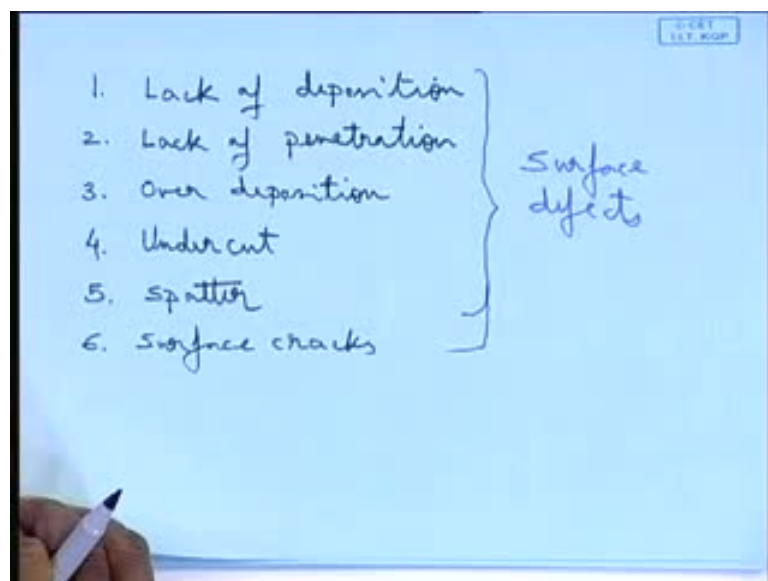 1. Lack of deposition
2. Lack of penetration
3. Over deposition
4. Undercut
5. Spatter
6. Surface cracks
Surface
defects
I.I.T. KGP